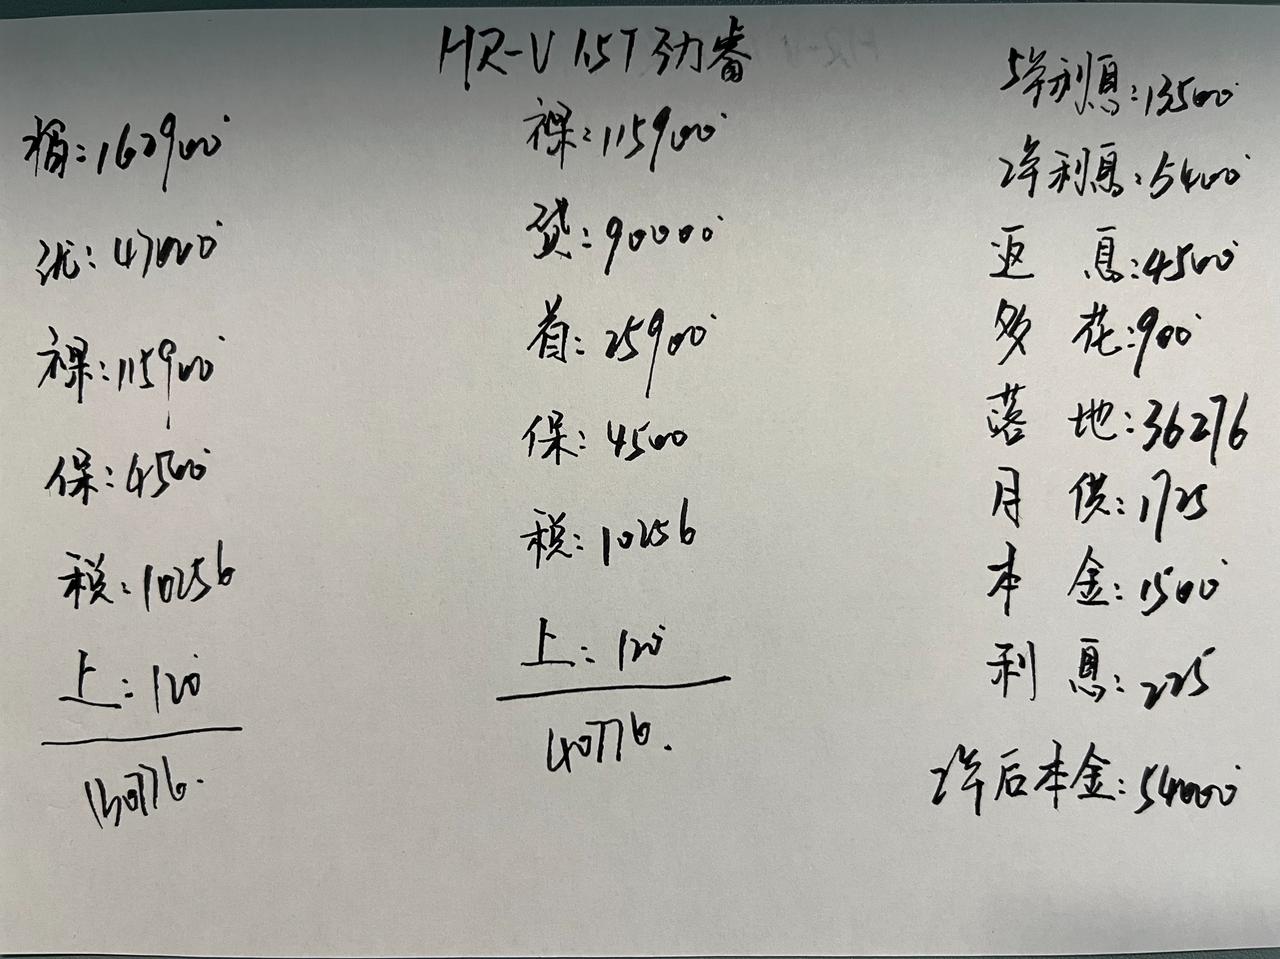 HR-V 1.5T 劲睿
指:162900
优:47000
裸:115900
保:4500
税:10256
上:120
130776.
裸:115900
贷:90000
首:25900
保:4500
税:10256
上:120
40776.
5年利息:13500
2年利息:5400
返息:4500
多花:900
落地:36276
月供:1725
本金:1500
利息:225
2年后本金:54000